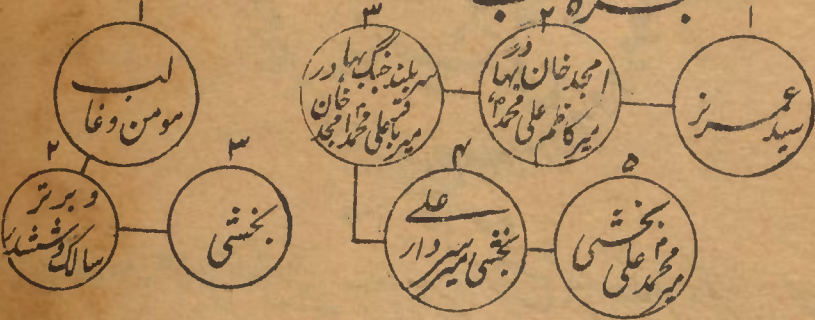 ۱
سید عمریز
۲
امجد خان بہادر
میر کاظم علی محمد
۳
سربلند جنگ بہادر
میر باقر علی محمد امجد خان
۴
بخشی میر سردار علی
۵
بخشی
میر محمد علی
۱
لب
مومن وغا
۲
وبرتر
سالک
۳
بخشی